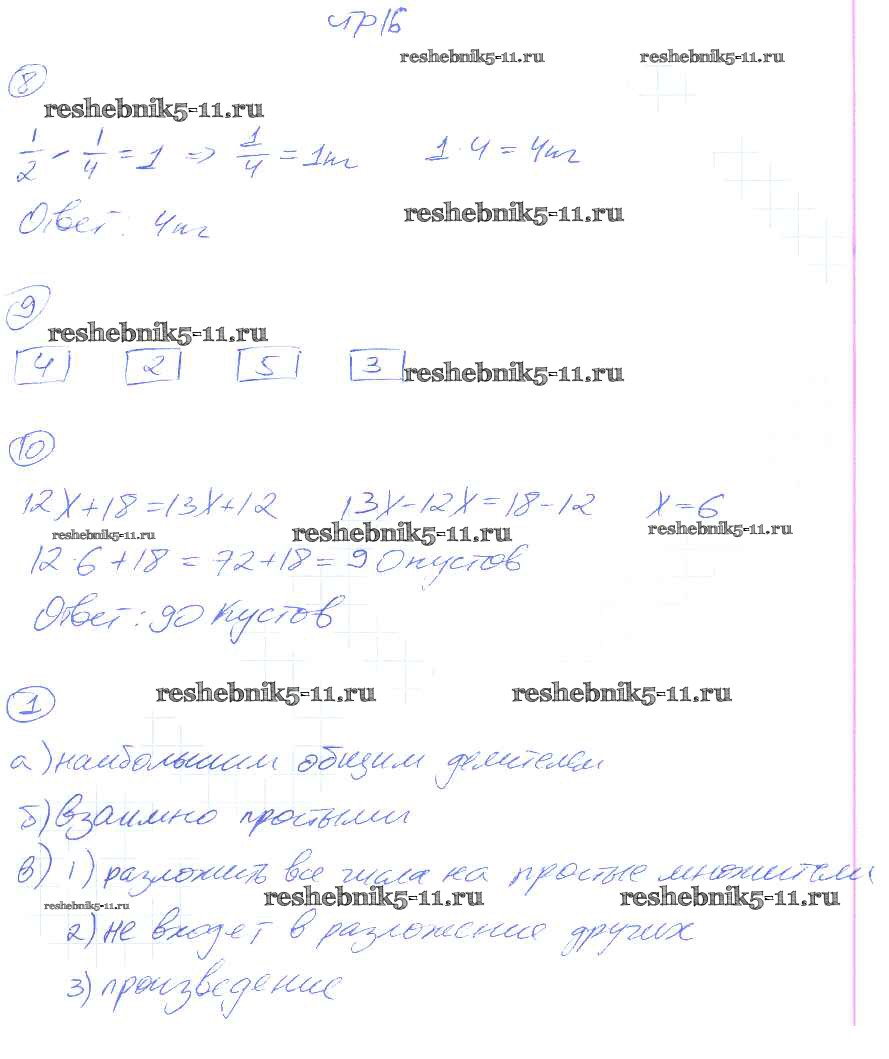 стр 16
reshebnik5-11.ru reshebnik5-11.ru
8
reshebnik5-11.ru
1/2 - 1/4 = 1 => 1/4 = 1кг 1·4 = 4кг
reshebnik5-11.ru
Ответ: 4кг
9
reshebnik5-11.ru
4 2 5 3
reshebnik5-11.ru
10
12x+18=13x+12 13x-12x=18-12 x=6
reshebnik5-11.ru reshebnik5-11.ru reshebnik5-11.ru
12·6+18 = 72+18= 90кустов
Ответ: 90 кустов
reshebnik5-11.ru reshebnik5-11.ru
1
а) наибольшим общим делителем
б) взаимно простыми
в) 1) разложить все числа на простые множители
reshebnik5-11.ru reshebnik5-11.ru reshebnik5-11.ru
2) не входет в разложение других
3) произведение